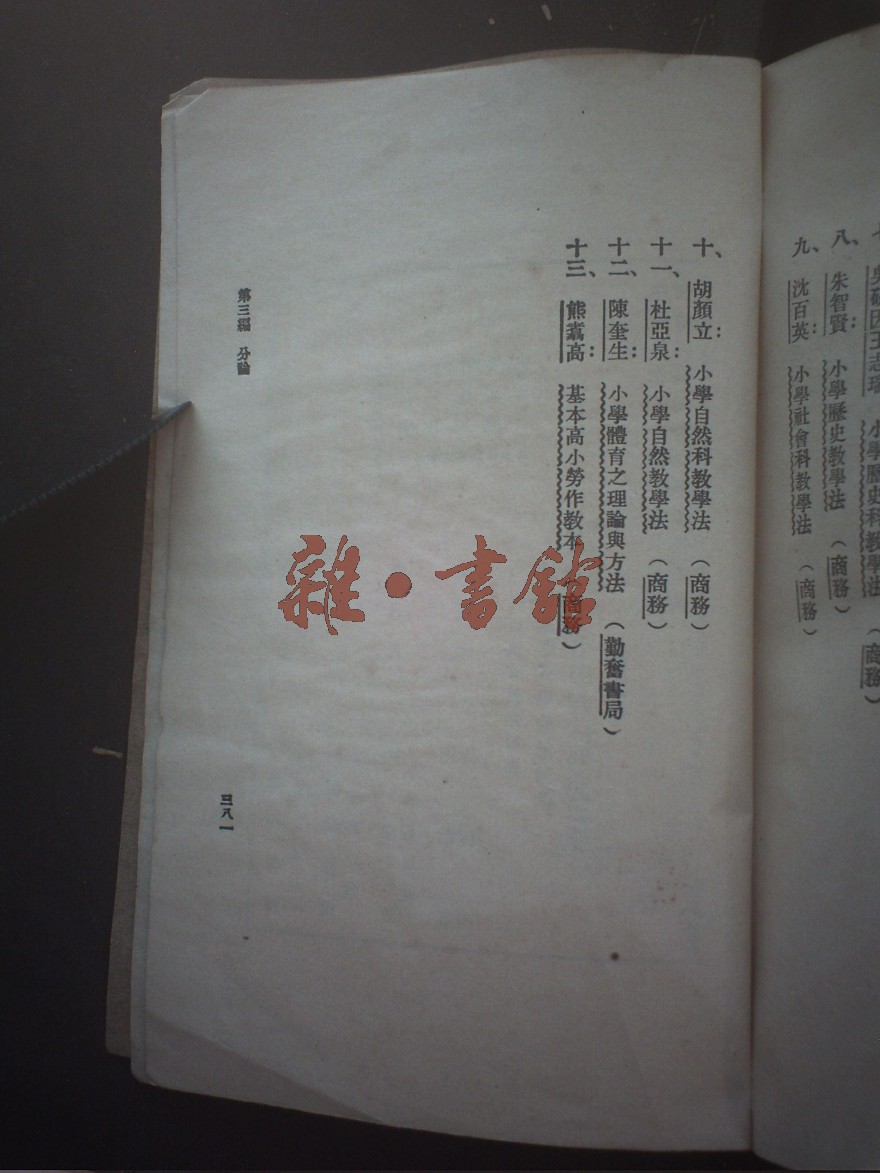 吳研因王志瑞 小學歷史科教學法 (商務)
八、朱智賢: 小學歷史教學法 (商務)
九、沈百英: 小學社會科教學法 (商務)
十、胡顏立: 小學自然科教學法 (商務)
十一、杜亞泉: 小學自然教學法 (商務)
十二、陳奎生: 小學體育之理論與方法 (勤奮書局)
十三、熊翥高: 基本高小勞作教本 商務)
第三編 分論
三八一
雜•書館